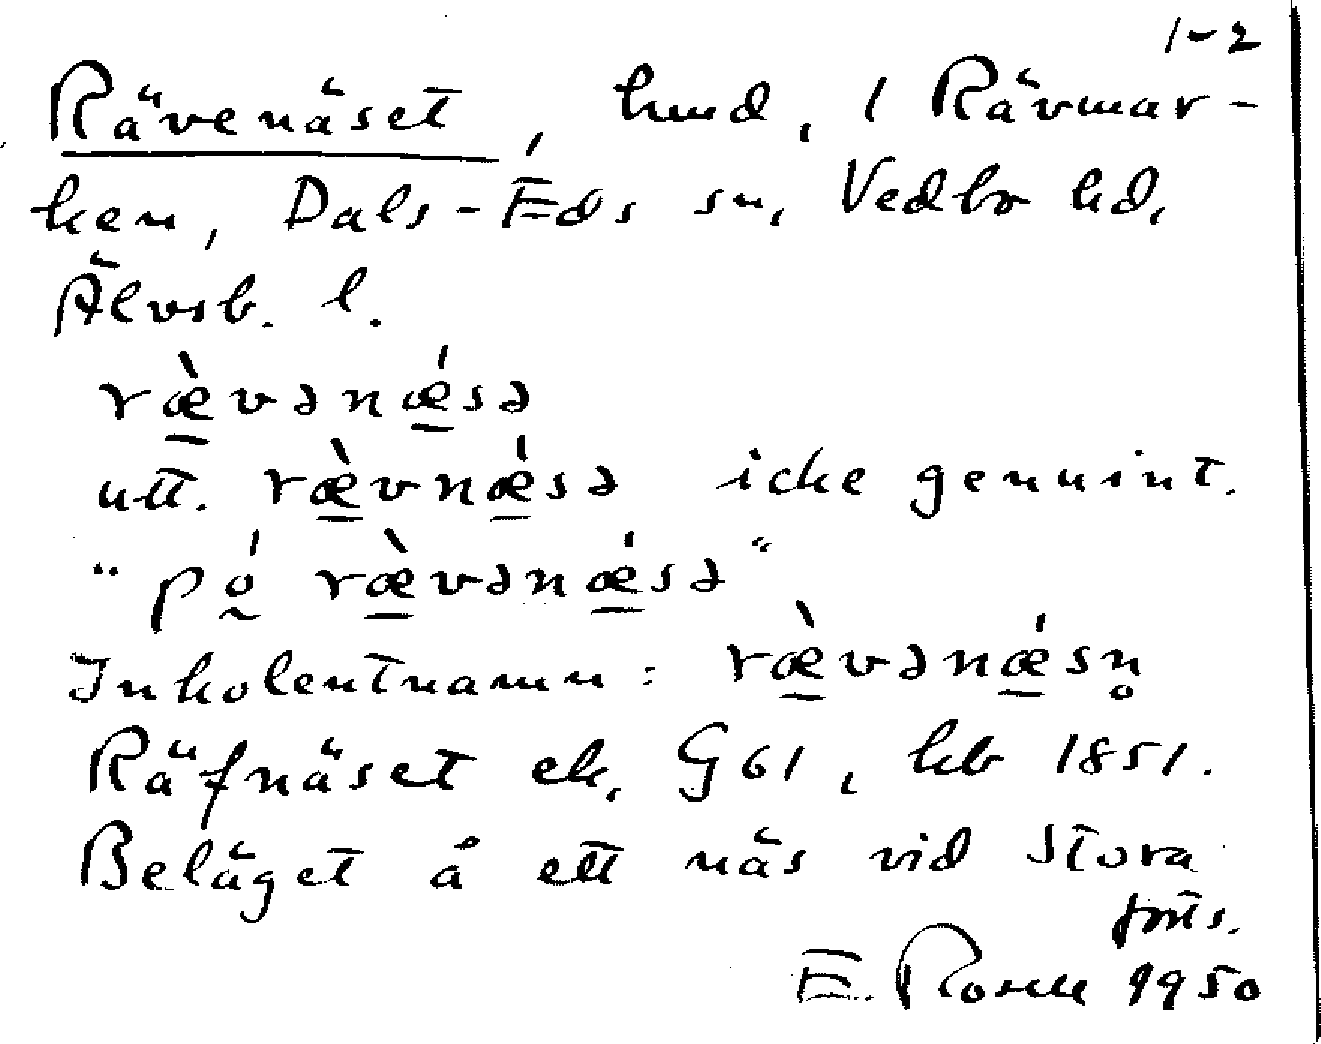 1-2
Rävenäset, hmd, i Rävmar-
ken, Dals-Eds sn, Vedbo hd,
Älvsb. l.
ræ̀vənǽsə
utt. ræ̀vnǽsə icke genuint.
"pó ræ̀vənǽsə"
Inkolentnamn: ræ̀vənǽsn̥
Räfnäset ek, G61, hb 1851.
Beläget å ett näs vid Stora
forts.
E. Rosell 1950